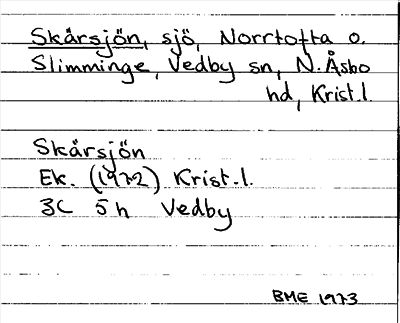 Skärsjön, sjö, Norrtofta o.
Slimminge, Vedby sn, N. Åsbo
hd, Krist. l.
Skärsjön
Ek. (1972) Krist. l.
3C 5h Vedby
BME 1973